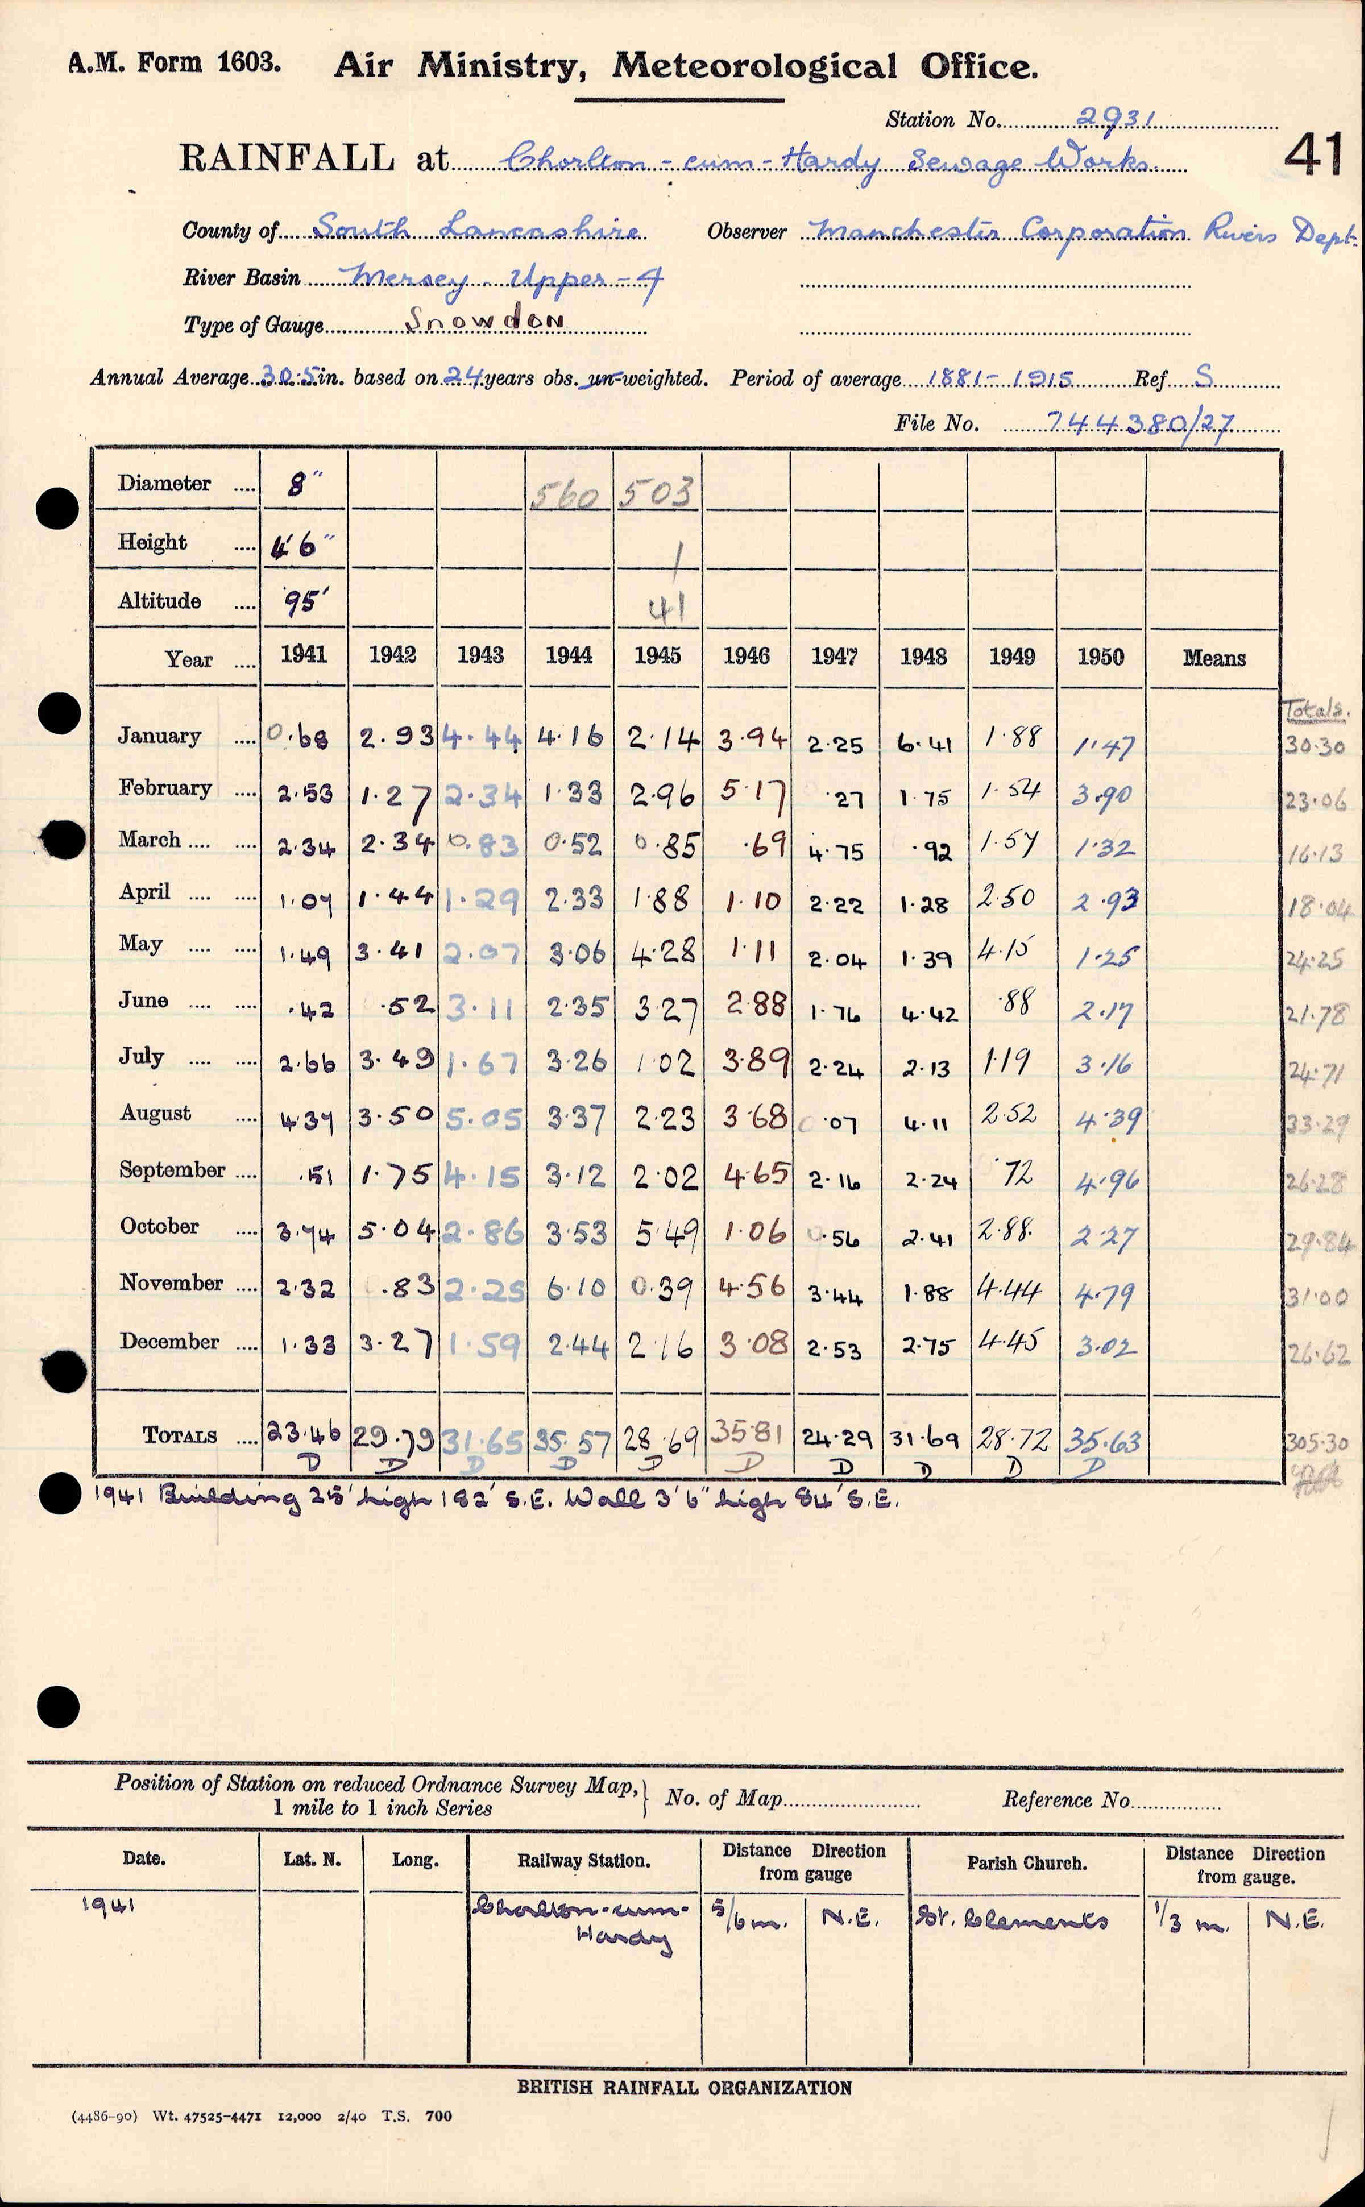 A.M. Form 1603. Air Ministry, Meteorological Office.
Station No. 2931
41
RAINFALL at Chorlton-cum-Hardy Sewage Works.
County of South Lancashire Observer Manchester Corporation Rivers Dept.
River Basin Mersey. Upper-4
Type of Gauge Snowdon
Annual Average 30.5 in. based on 24 years obs. un-weighted. Period of average 1881-1915 Ref S
File No. 744380/27
Diameter .... 8" 560 503
Height .... 4'6" 1
Altitude .... 95' 41
Year .... 1941 1942 1943 1944 1945 1946 1947 1948 1949 1950 Means
Totals.
January .... 0.68 2.93 4.44 4.16 2.14 3.94 2.25 6.41 1.88 1.47 30.30
February .... 2.53 1.27 2.34 1.33 2.96 5.17 .27 1.75 1.54 3.90 23.06
March .... .... 2.34 2.34 0.83 0.52 0.85 .69 4.75 .92 1.57 1.32 16.13
April .... .... 1.07 1.44 1.29 2.33 1.88 1.10 2.22 1.28 2.50 2.93 18.04
May .... .... 1.49 3.41 2.07 3.06 4.28 1.11 2.04 1.39 4.15 1.25 24.25
June .... .... .42 .52 3.11 2.35 3.27 2.88 1.76 4.42 .88 2.17 21.78
July .... .... 2.66 3.49 1.67 3.26 1.02 3.89 2.24 2.13 1.19 3.16 24.71
August .... 4.37 3.50 5.05 3.37 2.23 3.68 0.07 4.11 2.52 4.39 33.29
September .... .51 1.75 4.15 3.12 2.02 4.65 2.16 2.24 .72 4.96 26.28
October .... 3.74 5.04 2.86 3.53 5.49 1.06 0.56 2.41 2.88. 2.27 29.84
November .... 2.32 .83 2.25 6.10 0.39 4.56 3.44 1.88 4.44 4.79 31.00
December .... 1.33 3.27 1.59 2.44 2.16 3.08 2.53 2.75 4.45 3.02 26.62
TOTALS .... 23.46 29.79 31.65 35.57 28.69 35.81 24.29 31.69 28.72 35.63 305.30
D D D D D D D D D D
1941 Building 25' high 182' S.E. Wall 3'6" high 84' S.E.
Position of Station on reduced Ordnance Survey Map, No. of Map Reference No.
1 mile to 1 inch Series
Date. Lat. N. Long. Railway Station. Distance Direction from gauge Parish Church. Distance Direction from gauge.
1941 Chorlton-cum-Hardy 5/6 m. N.E. St. Clements 1/3 m. N.E.
BRITISH RAINFALL ORGANIZATION
(4486-90) Wt. 47525-4471 12,000 2/40 T.S. 700